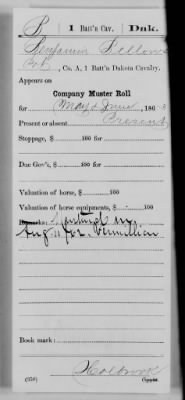 B | 1 Batt'n Cav. | Dak.
Benjamin Bellows
, Co. A, 1 Batt'n Dakota Cavalry.
Appears on
Company Muster Roll
for May & June, 186
Present or absent Present
Stoppage, $ 100 for
Due Gov't, $ 100 for
Valuation of horse, $ 100
Valuation of horse equipments, $ 100
Remarks:
Aug. for Vermillion
Book mark:
Holbrook
(858) Copyist.